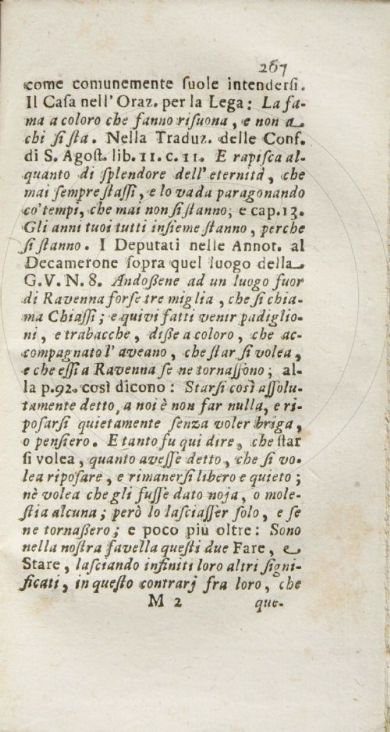 267
come comunemente suole intendersi.
Il Casa nell'Oraz. per la Lega: La fa-
ma a coloro che fanno risuona, e non a
chi si sta. Nella Traduz. delle Conf.
di S. Agost. lib. 11. c. 11. E rapisca al-
quanto di splendore dell'eternità, che
mai sempre stassi, e lo vada paragonando
co'tempi, che mai non si stanno; e cap. 13.
Gli anni tuoi tutti insieme stanno, perche
si stanno. I Deputati nelle Annot. al
Decamerone sopra quel luogo della
G. V. N. 8. Andoßene ad un luogo fuor
di Ravenna forse tre miglia, che si chia-
ma Chiassi; e quivi fatti venir padiglio-
ni, e trabacche, diße a coloro, che ac-
compagnato l'aveano, che star si volea,
e che essi a Ravenna se ne tornassono; al-
la p. 92. così dicono: Starsi così assolu-
tamente detto, a noi è non far nulla, e ri-
posarsi quietamente senza voler briga,
o pensiero. E tanto fu qui dire, che star
si volea, quanto avesse detto, che si vo-
lea riposare, e rimanersi libero e quieto;
nè volea che gli fusse dato noja, o mole-
stia alcuna; però lo lasciasser solo, e se
ne tornaßero; e poco più oltre: Sono
nella nostra favella questi due Fare, e
Stare, lasciando infiniti loro altri signi-
ficati, in questo contrarj fra loro, che
M 2 que-